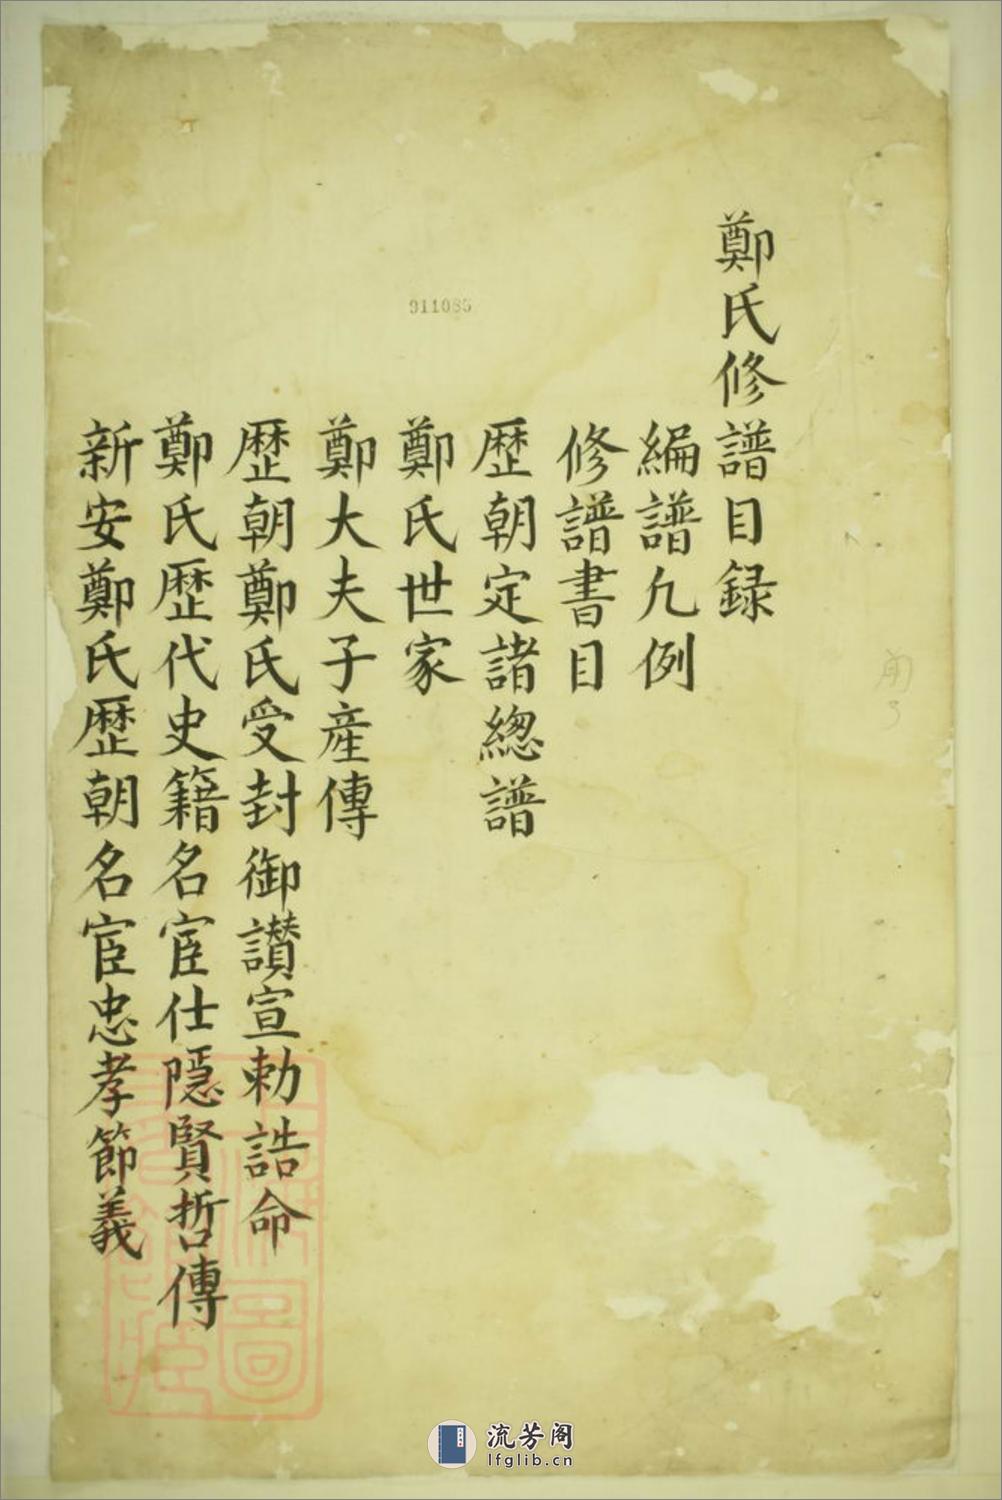 鄭氏修譜目録
編譜凡例
修譜書目
歴朝定諸總譜
鄭氏世家
鄭大夫子産傳
歴朝鄭氏受封御讃宣勅誥命
鄭氏歴代史籍名宦仕隱賢哲傳
新安鄭氏歴朝名宦忠孝節義
911085
流芳阁
lfglib.cn